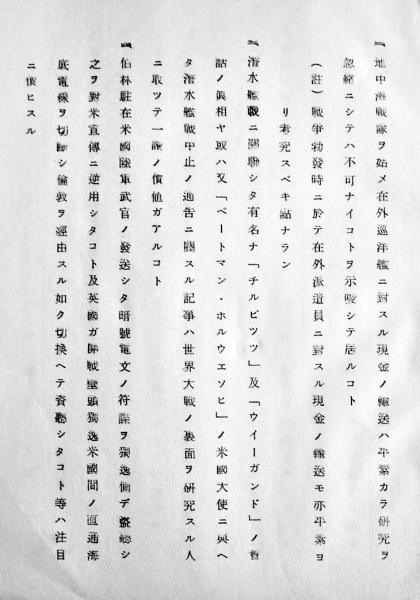 一、地中海戰隊ヲ始メ在外巡洋艦ニ對スル現金ノ輸送ハ平素カラ研究ヲ
忽緒ニシテハ不可ナイコトヲ示唆シテ居ルコト
(註)戰爭勃發時ニ於テ在外派遣員ニ對スル現金ノ輸送モ亦平素ヨ
リ考究スベキ點ナラン
潛水艦戰ニ關聯シタ有名ナ「チルピツツ」及「ウイーガンド」ノ會
話ノ眞相ヤ或ハ又「ベートマン・ホルウエソヒ」ノ米國大使ニ與ヘ
タ潛水艦戰中止ノ通告ニ關スル記事ハ世界大戰ノ裏面ヲ研究スル人
ニ取ツテ一讀ノ價値ガアルコト
伯林駐在米國陸軍武官ノ發送シタ暗號電文ノ符諜ヲ獨逸側デ盜聽シ
之ヲ對米宣傳ニ逆用シタコト及英國ガ開戰壁頭獨逸米國間ノ直通海
底電線ヲ切斷シ倫敦ヲ經由スル如ク切換ヘテ竊聽シタコト等ハ注目
ニ價ヒスル